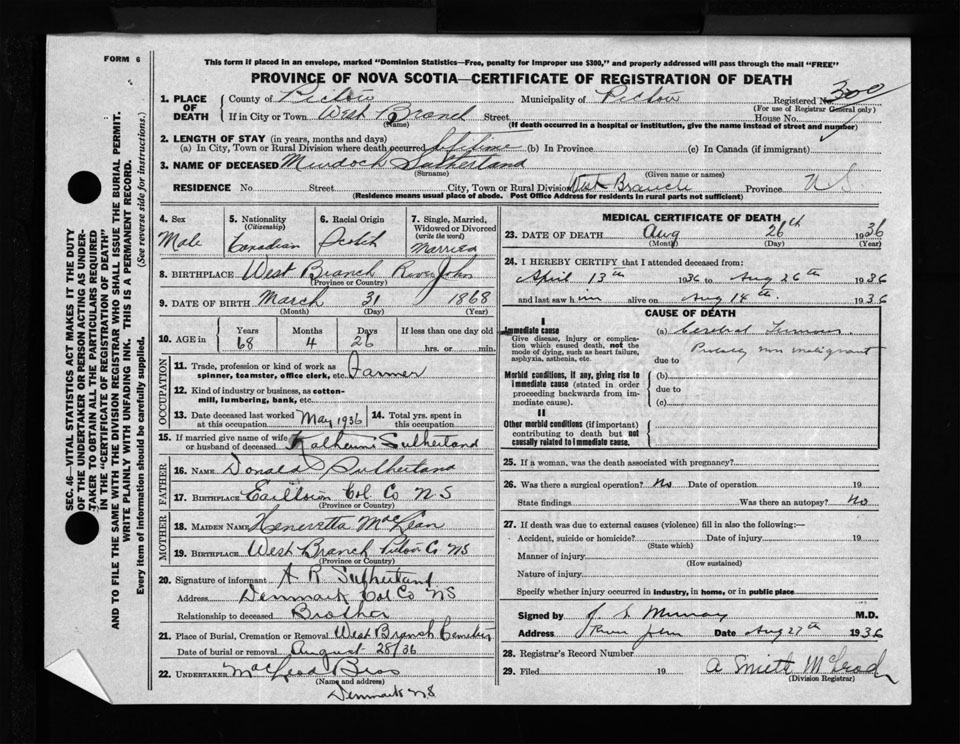 FORM 6
This form if placed in an envelope, marked "Dominion Statistics—Free, penalty for improper use $300," and properly addressed will pass through the mail "FREE"
PROVINCE OF NOVA SCOTIA—CERTIFICATE OF REGISTRATION OF DEATH
1. PLACE OF DEATH County of Pictou Municipality of Pictou Registered No. 300
(For use of Registrar General only)
If in City or Town West Branch Street House No.
(Name) (If death occurred in a hospital or institution, give the name instead of street and number)
2. LENGTH OF STAY (in years, months and days)
(a) In City, Town or Rural Division where death occurred lifetime (b) In Province (c) In Canada (if immigrant)
3. NAME OF DECEASED Murdoch Sutherland
(Surname) (Given name or names)
RESIDENCE No. Street City, Town or Rural Division West Branch Province N S
(Residence means usual place of abode. Post Office Address for residents in rural parts not sufficient)
4. Sex Male
5. Nationality (Citizenship) Canadian
6. Racial Origin Scotch
7. Single, Married, Widowed or Divorced (write the word) Married
8. BIRTHPLACE West Branch River John
(Province or Country)
9. DATE OF BIRTH March 31 1868
(Month) (Day) (Year)
10. AGE in Years 68 Months 4 Days 26 If less than one day old hrs. or min.
OCCUPATION
11. Trade, profession or kind of work as spinner, teamster, office clerk, etc. Farmer
12. Kind of industry or business, as cotton-mill, lumbering, bank, etc.
13. Date deceased last worked at this occupation May 1936
14. Total yrs. spent in this occupation
15. If married give name of wife or husband of deceased Sutherland
FATHER
16. NAME Donald Sutherland
17. BIRTHPLACE Earltown Col. Co N S
(Province or Country)
MOTHER
18. MAIDEN NAME Heneretta MacLean
19. BIRTHPLACE West Branch Pictou Co NS
(Province or Country)
20. Signature of informant A R Sutherland
Address Denmark Col Co NS
Relationship to deceased Brother
21. Place of Burial, Cremation or Removal West Branch Cemetery
Date of burial or removal August 28/36
22. UNDERTAKER MacLeod Bros
(Name and address)
Denmark N.S.
MEDICAL CERTIFICATE OF DEATH
23. DATE OF DEATH Aug 26th 1936
(Month) (Day) (Year)
24. I HEREBY CERTIFY that I attended deceased from:
April 13th 1936 to Aug 26th 1936
and last saw him alive on Aug 14th. 1936
CAUSE OF DEATH
I
Immediate cause
Give disease, injury or complication which caused death, not the mode of dying, such as heart failure, asphyxia, asthenia, etc.
(a) Cerebral Tumour.
Probably non malignant
due to
Morbid conditions, if any, giving rise to immediate cause (stated in order proceeding backwards from immediate cause).
(b)
due to
(c)
II
Other morbid conditions (if important) contributing to death but not causally related to immediate cause.
25. If a woman, was the death associated with pregnancy?
26. Was there a surgical operation? No Date of operation 19
State findings Was there an autopsy? No
27. If death was due to external causes (violence) fill in also the following:—
Accident, suicide or homicide? Date of injury 19
(State which)
Manner of injury
(How sustained)
Nature of injury
Specify whether injury occurred in industry, in home, or in public place
Signed by J S Murray M.D.
Address River John Date Aug 27th 1936
28. Registrar's Record Number
29. Filed 19 A Smith McLeod
(Division Registrar)
SEC. 46—VITAL STATISTICS ACT MAKES IT THE DUTY
OF THE UNDERTAKER OR PERSON ACTING AS UNDER-
TAKER TO OBTAIN ALL THE PARTICULARS REQUIRED
IN THE "CERTIFICATE OF REGISTRATION OF DEATH"
AND TO FILE THE SAME WITH THE DIVISION REGISTRAR WHO SHALL ISSUE THE BURIAL PERMIT.
WRITE PLAINLY WITH UNFADING INK. THIS IS A PERMANENT RECORD.
Every item of information should be carefully supplied. (See reverse side for instructions.)